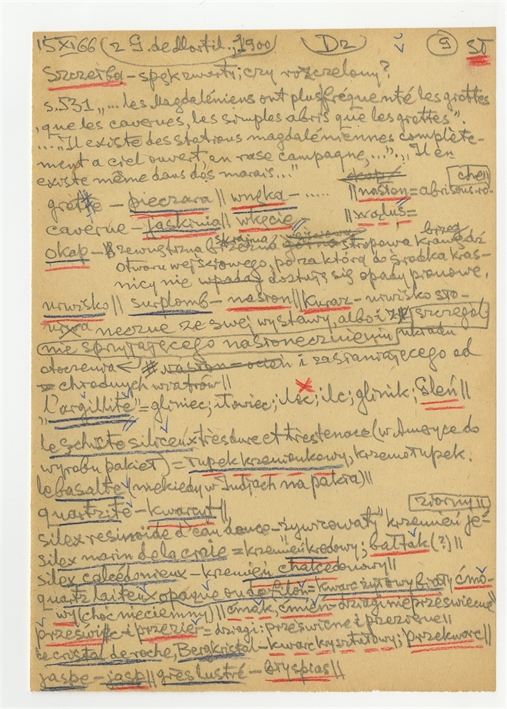 15 XI 66 (z G. de Mortil., 1900) Dz 9 SŁ
Szczerba – spęk zwarty; czy rozczelony?
s. 531 „... les Magdaléniens ont plus fréquenté les grottes
que les cavernes, les simples abris que les grottes”.
...„Il existe des stations magdaléniennes complète-
ment a ciel ouvert, en rase campagne,...”„ Il en
existe même dans dos marais...”
grotte – pieczara || wnęka – ...... || nasłon = abri sous ro- che||
caverne – jaskinia || wkęcie ||
okap – zewnętrzna stropowa krawędź
otworu wejściowego, poza którą do środka kras-
nicy nie wpadają dostają się opady pionowe,
urwisko || surplomb – nasłon ||
neczne ze swej wystawy, albo i z szczegól
nie sprzyjającego nasłonecznieniu układu
otoczenia i zasłaniającego od
chłodnych wiatrów ||
„l'argillite” = gliniec; iłowiec; ił; glinik;
le schiste siliceux très dure et très tenace (w Ameryce do
wyrobu pakiet) = łupek krzemionkowy, krzemołupek.
le basalte (niekiedy w Indjach na pakja) ||
quartzite – kwarcyt || ziorny ||
silex resinoide d'eau douce – krzemień je-
silex marin de la craie = krzemień kredowy; bałtak (?) ||
silex calcédonieux – krzemień chalcedonowy ||
quartz laiteux opaque ou de filon = kwarc żyłowy biały, ćmo-
wy (choć nieciemny) || ćmok, – dziągi nieprześwienne
prześwięc i przezier = dziągi: prześwienne i przezrene ||
le cristal de roche, Bergkristal – kwarc kryształowy; przekwarc ||
jaspe – jasp || gres lustré – bryspias ||